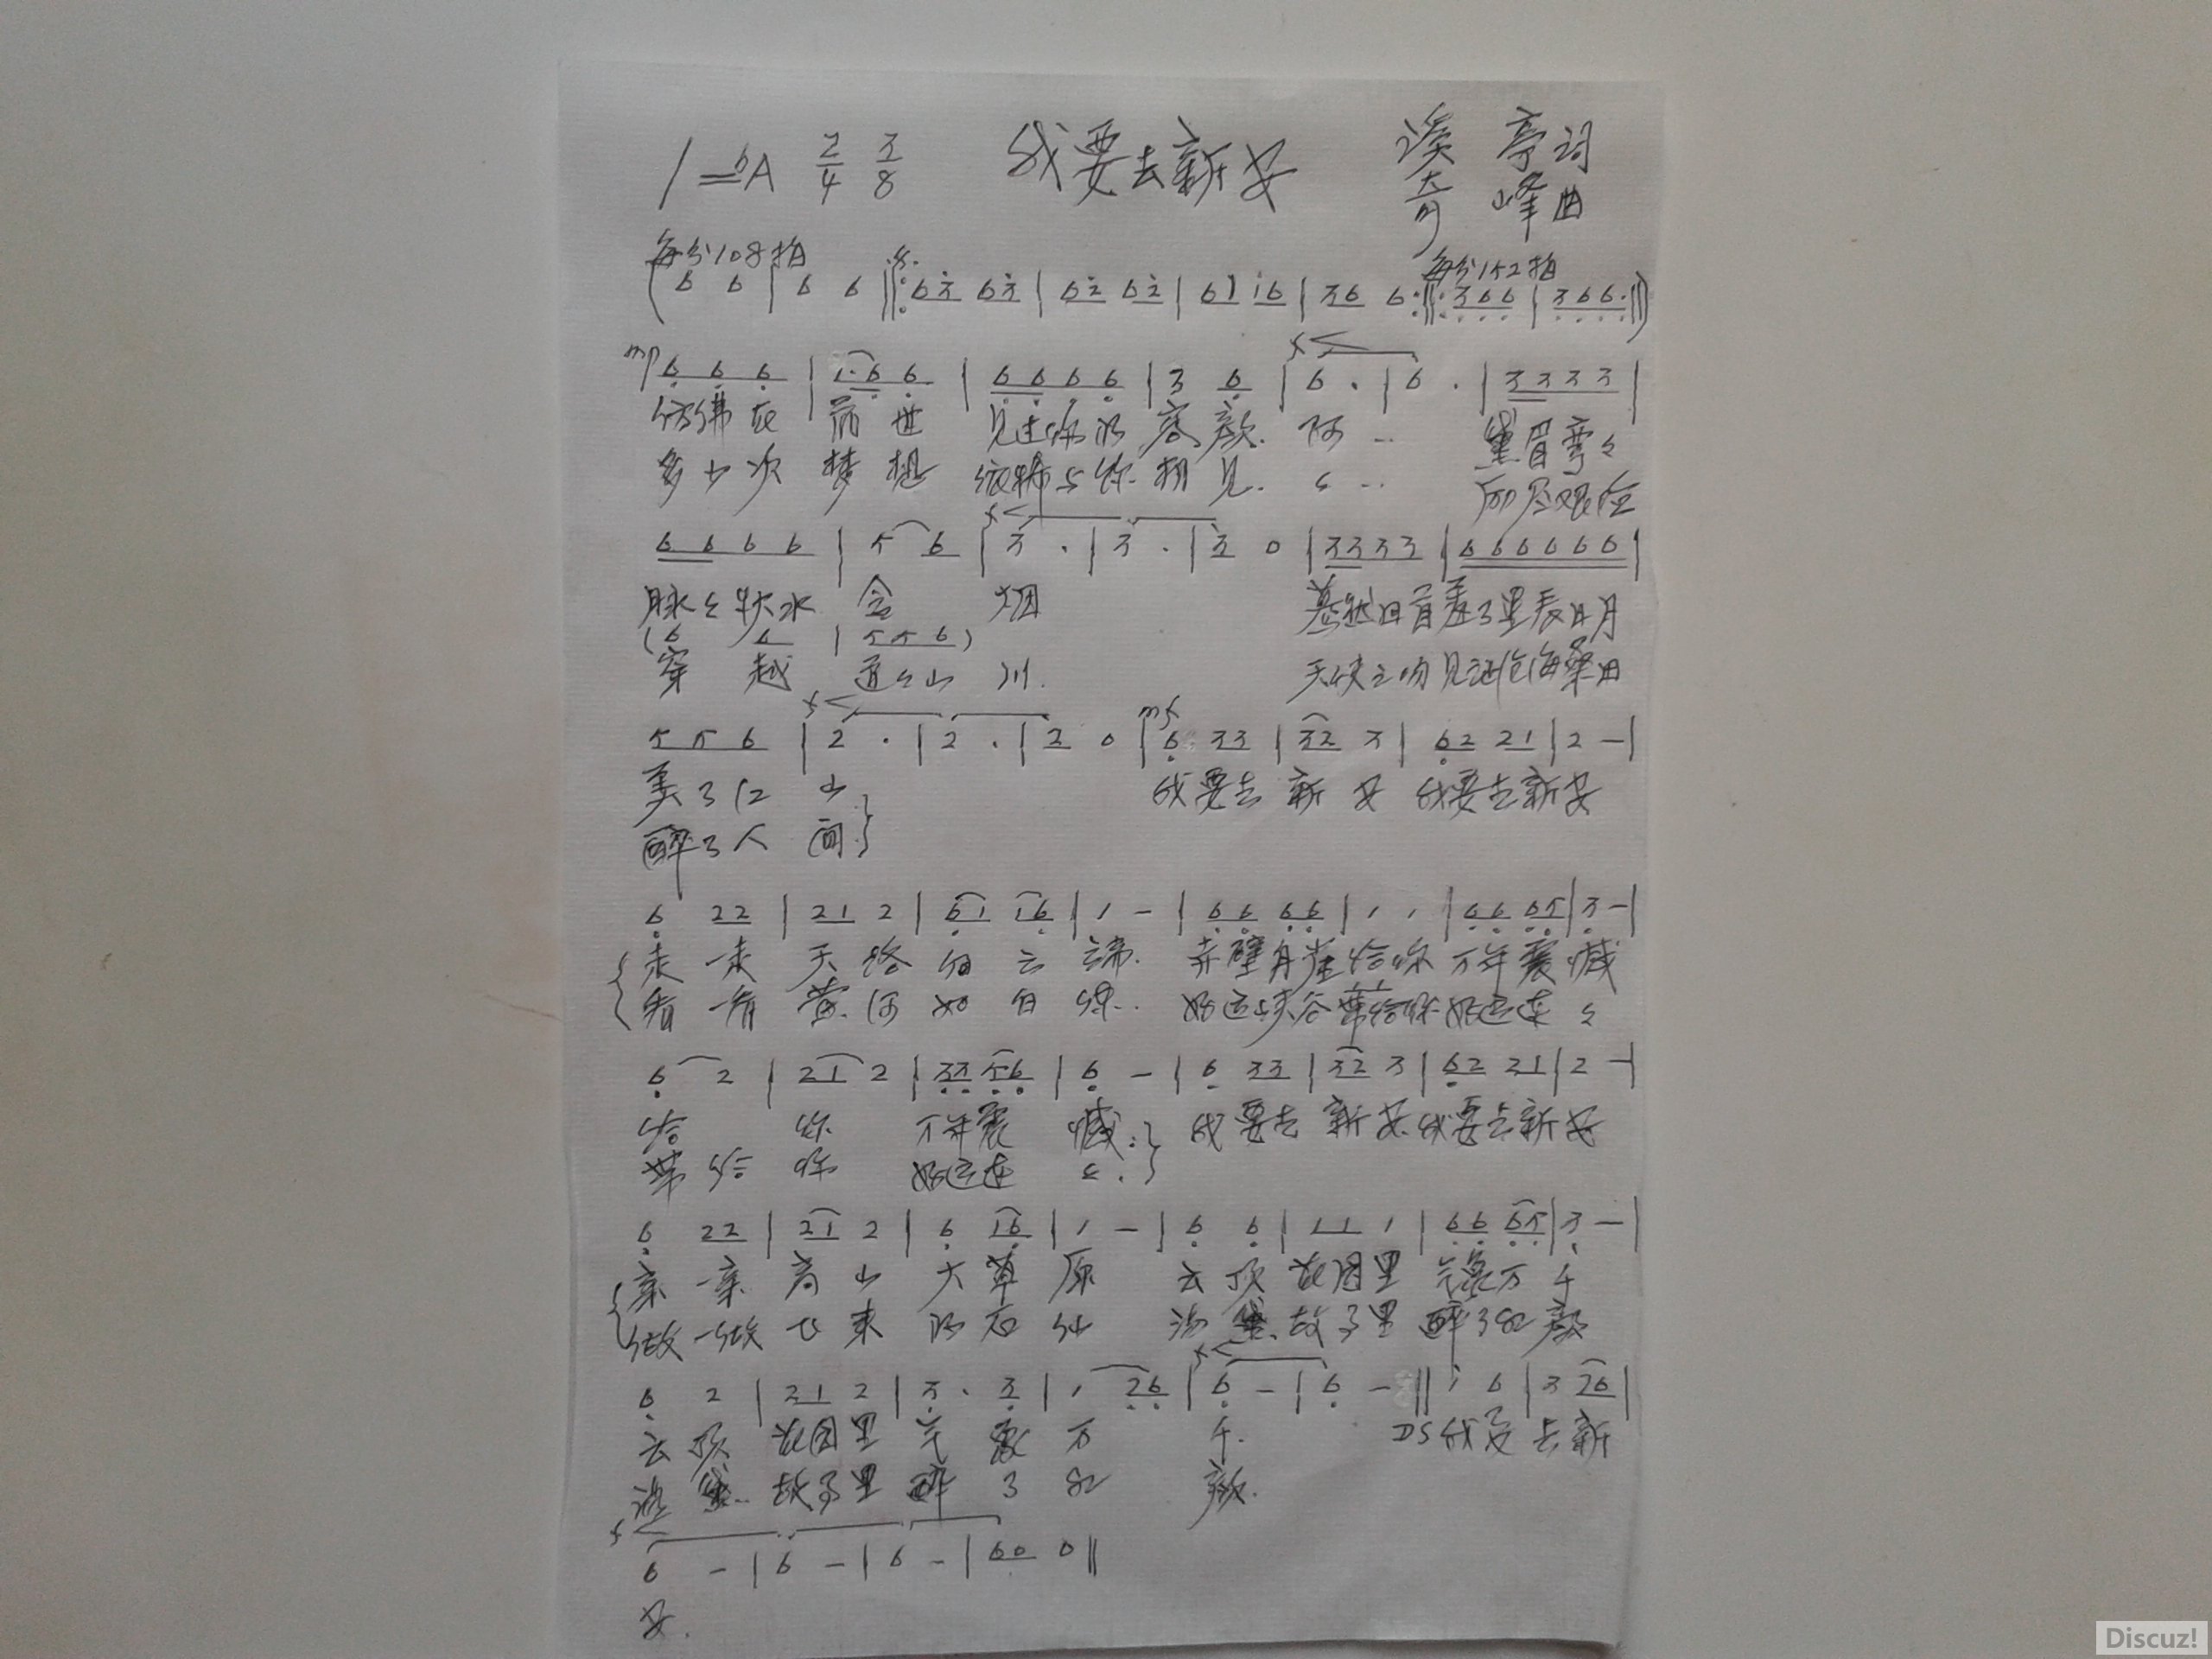 1=bA 2/4 3/8 我要去新安 溪亭词
奇峰曲
每分108拍 每分152拍
(6 6 | 6 6 ||: 63 63 | 62 62 | 61 16 | 36 6 :||: 366 | 366 :||)
mp 6 6 6 | 1·6 6 | 6 6 6 6 | 3 6 | f 6 · | 6 · | 3 3 3 3 |
仿佛在 前世 见过你的容颜. 阿… 黛眉弯々
多少次 梦想 依稀与你相见. 々… 历尽艰险
6 6 6 6 | 5 6 | f 3 · | 3 · | 3 0 | 3 3 3 3 | 6 6 6 6 6 6 |
脉々秋水 含 烟 蓦然回首 了里 日月
(6 6 | 5 5 6)
穿越 道々山川. 天使之吻见证沧海桑田
5 5 6 | f 2 · | 2 · | 2 0 | mf 6 33 | 32 3 | 62 21 | 2 - |
美了江山 我要去新安 我要去新安
醉了人间.
6 22 | 21 2 | 61 16 | 1 - | 66 66 | 1 1 | 66 65 | 3 - |
走一走天路白云端. 赤壁丹崖给你万年震憾
看一看黄河如白练.. 好运峡谷带给你好运连々
6 2 | 21 2 | 33 56 | 6 - | 6 33 | 32 3 | 62 21 | 2 - |
给 你 万年震憾. 我要去新安.我要去新安
带给你 好运连々.
6 22 | 21 2 | 6 16 | 1 - | 6 6 | 11 1 | 66 65 | 3 - |
亲一亲高山大草原 云顶花园里气象万千
做一做飞来的石仙 故了里醉了红颜
6 2 | 21 2 | 3 · 3 | 1 26 | f 6 - | 6 - || 1 6 | 3 26 |
云顶 花园里气象万千. DS我要去新
故了里醉了红颜.
f 6 - | 6 - | 6 - | 60 0 ||
安.
Discuz!